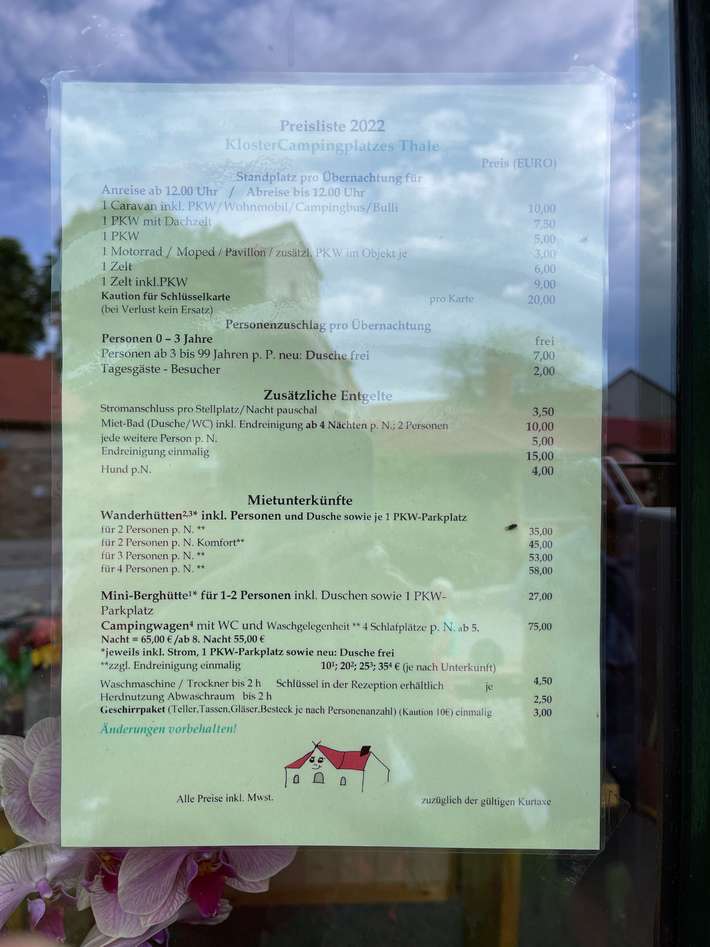 Preisliste 2022
KlosterCampingplatzes Thale
Preis (EURO)
Standplatz pro Übernachtung für
Anreise ab 12.00 Uhr / Abreise bis 12.00 Uhr
1 Caravan inkl. PKW/Wohnmobil/Campingbus/Bulli 10,00
1 PKW mit Dachzelt 7,50
1 PKW 5,00
1 Motorrad / Moped / Pavillon / zusätzl. PKW im Objekt je 3,00
1 Zelt 6,00
1 Zelt inkl.PKW 9,00
Kaution für Schlüsselkarte pro Karte 20,00
(bei Verlust kein Ersatz)
Personenzuschlag pro Übernachtung
Personen 0 – 3 Jahre frei
Personen ab 3 bis 99 Jahren p. P. neu: Dusche frei 7,00
Tagesgäste - Besucher 2,00
Zusätzliche Entgelte
Stromanschluss pro Stellplatz/Nacht pauschal 3,50
Miet-Bad (Dusche/WC) inkl. Endreinigung ab 4 Nächten p. N.; 2 Personen 10,00
jede weitere Person p. N. 5,00
Endreinigung einmalig 15,00
Hund p.N. 4,00
Mietunterkünfte
Wanderhütten²,³* inkl. Personen und Dusche sowie je 1 PKW-Parkplatz
für 2 Personen p. N. ** 35,00
für 2 Personen p. N. Komfort** 45,00
für 3 Personen p. N. ** 53,00
für 4 Personen p. N. ** 58,00
Mini-Berghütte¹* für 1-2 Personen inkl. Duschen sowie 1 PKW- 27,00
Parkplatz
Campingwagen⁴ mit WC und Waschgelegenheit ** 4 Schlafplätze p. N. ab 5. 75,00
Nacht = 65,00 €/ab 8. Nacht 55,00 €
*jeweils inkl. Strom, 1 PKW-Parkplatz sowie neu: Dusche frei
**zzgl. Endreinigung einmalig 10¹; 20²; 25³; 35⁴ € (je nach Unterkunft)
Waschmaschine / Trockner bis 2 h Schlüssel in der Rezeption erhältlich je 4,50
Herdnutzung Abwaschraum bis 2 h 2,50
Geschirrpaket (Teller,Tassen,Gläser,Besteck je nach Personenanzahl) (Kaution 10€) einmalig 3,00
Änderungen vorbehalten!
Alle Preise inkl. Mwst. zuzüglich der gültigen Kurtaxe